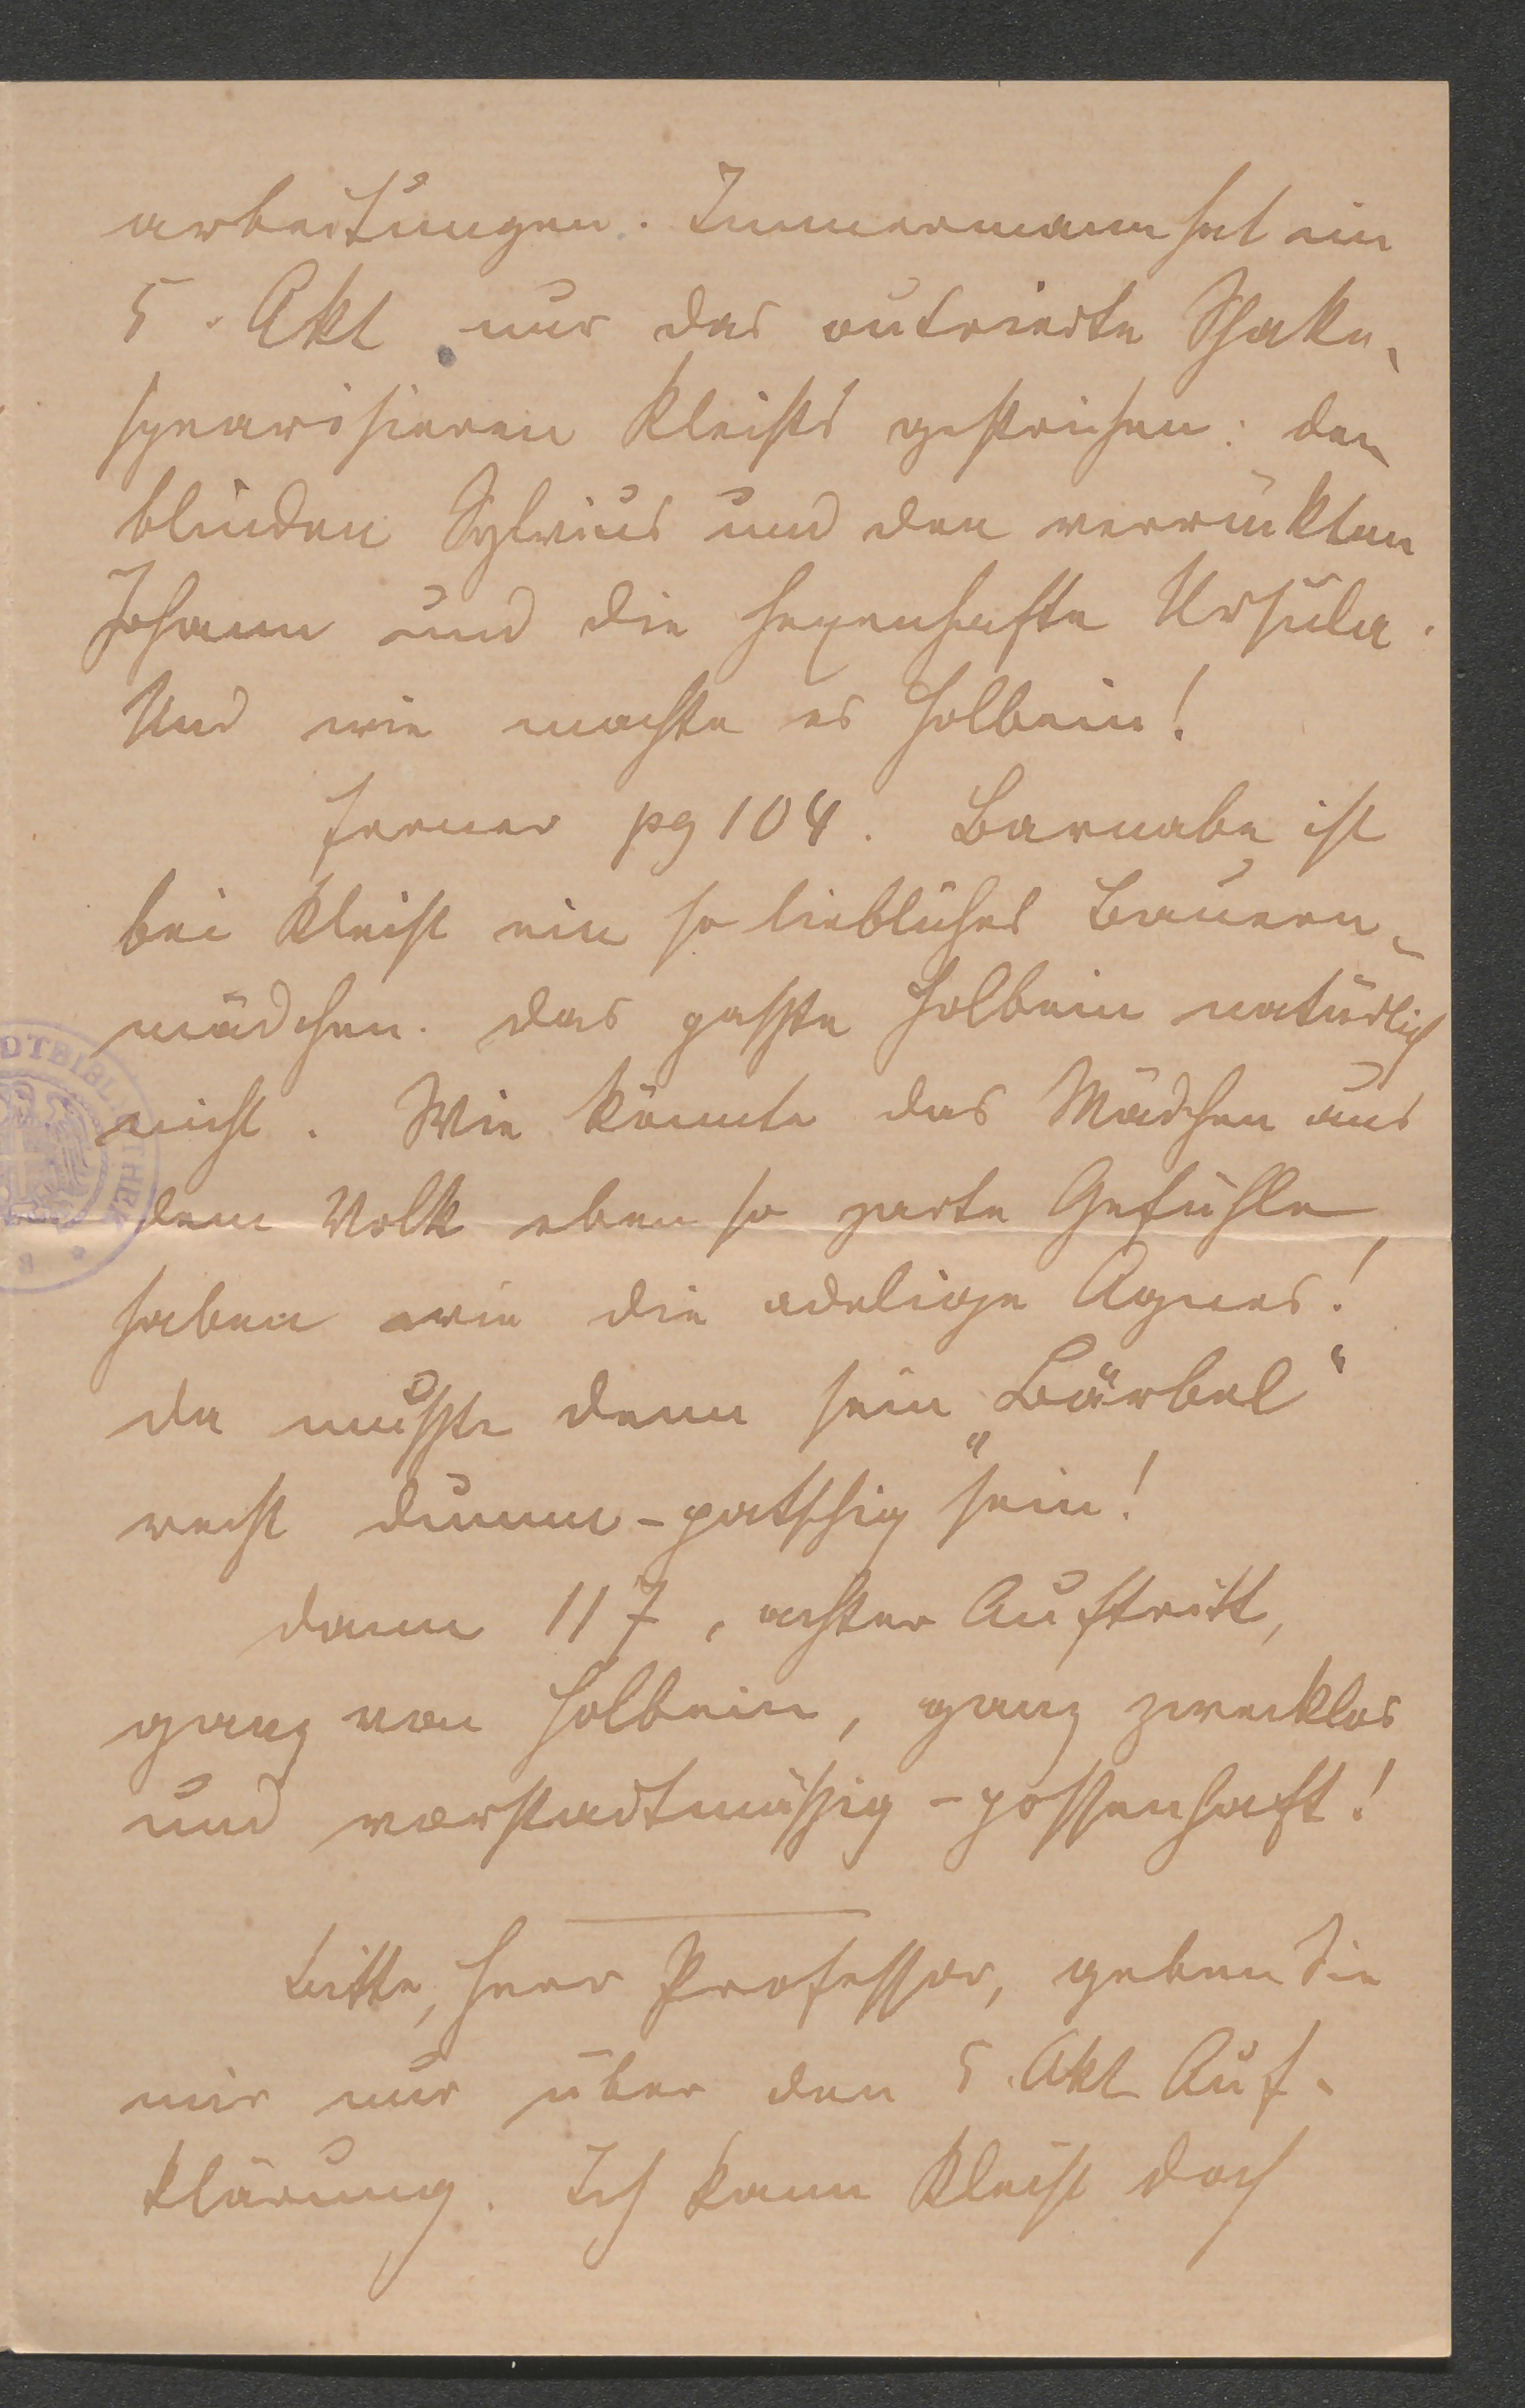 arbeitungen. Immermann hat ein
5. Akt nur das outrierte Shake-
spearisieren Kleists gestrichen: den
blinden Sylvius und den verrückten
Johann und die hexenhafte Ursula.
Und wie machte es Holbein!
Ferner pg 104. Barnabe ist
bei Kleist ein so liebliches Bauern-
mädchen. Das paßte Holbein natürlich
nicht. Wie könnte das Mädchen aus
dem Volk eben so zarte Gefühle
haben wie die adelige Agnes!
Da mußte denn sein „Bärbel“
recht dumm-patschig sein!
Dann 117, achter Auftritt,
ganz von Holbein, ganz zwecklos
und vorstadtmäßig-possenhaft!
Bitte, Herr Professor, geben Sie
mir nur über den 5. Akt Auf-
klärung. Ich kann Kleist doch